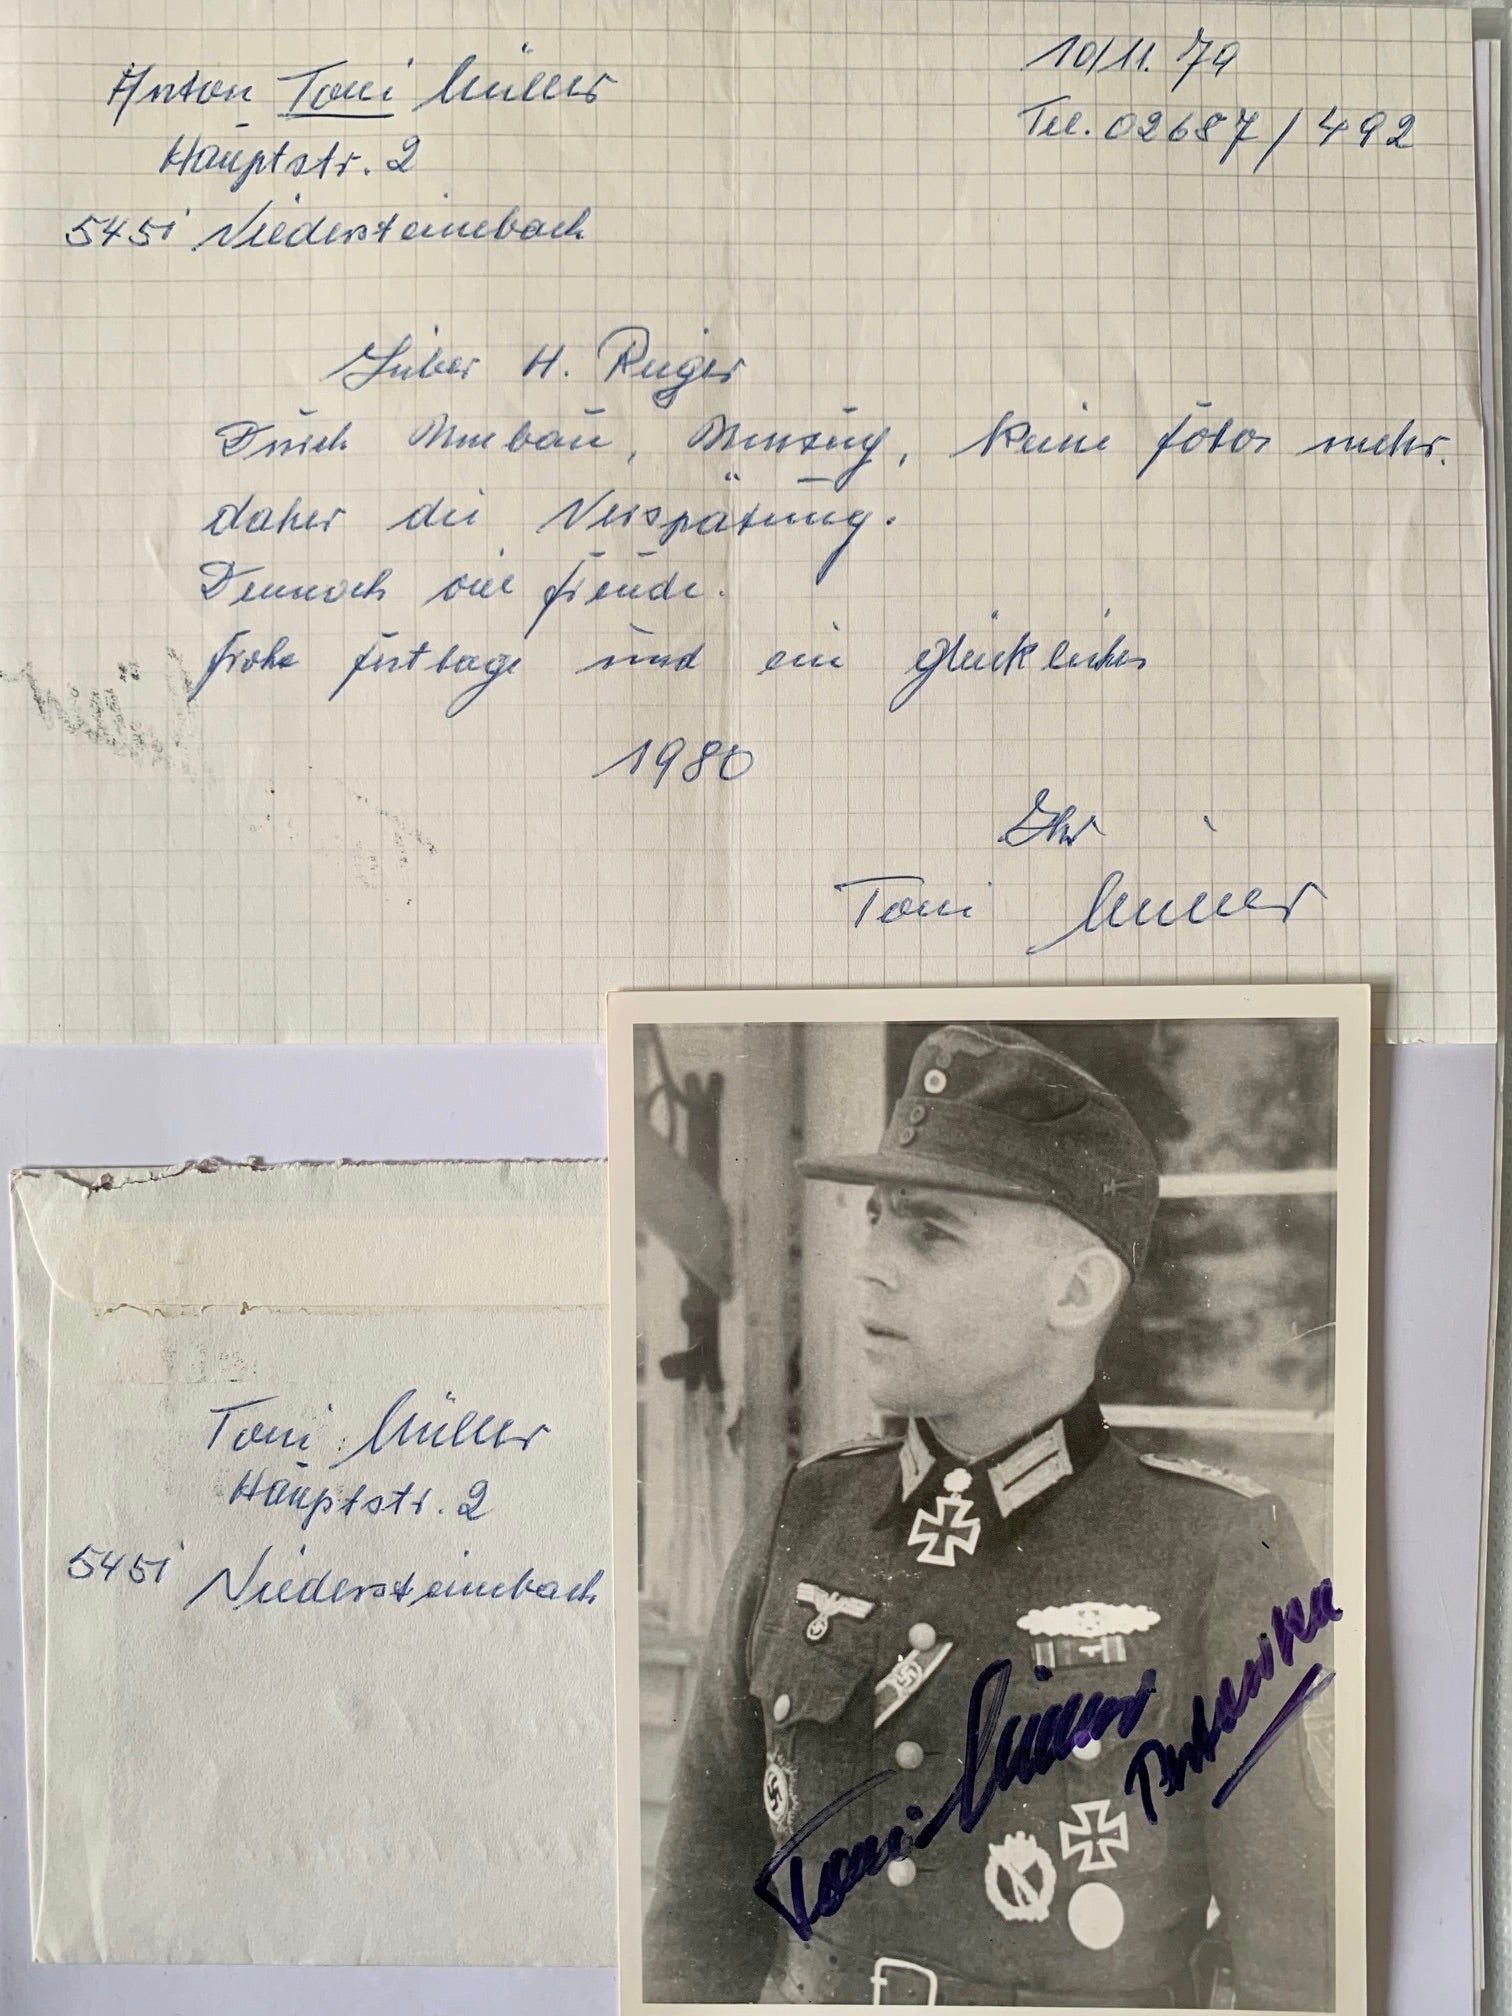 Anton Toni Müller
Hauptstr. 2
5451 Niedersteinebach
10/11. 79
Tel. 02687/492
Lieber H. Ruger
Durch Umbau, Umzug, keine fotos mehr.
daher die Verspätung.
Dennoch viel freude.
frohe festtage und ein glückliches
1980
Ihr
Toni Müller
Toni Müller
Hauptstr. 2
5451 Niedersteinebach
Toni Müller